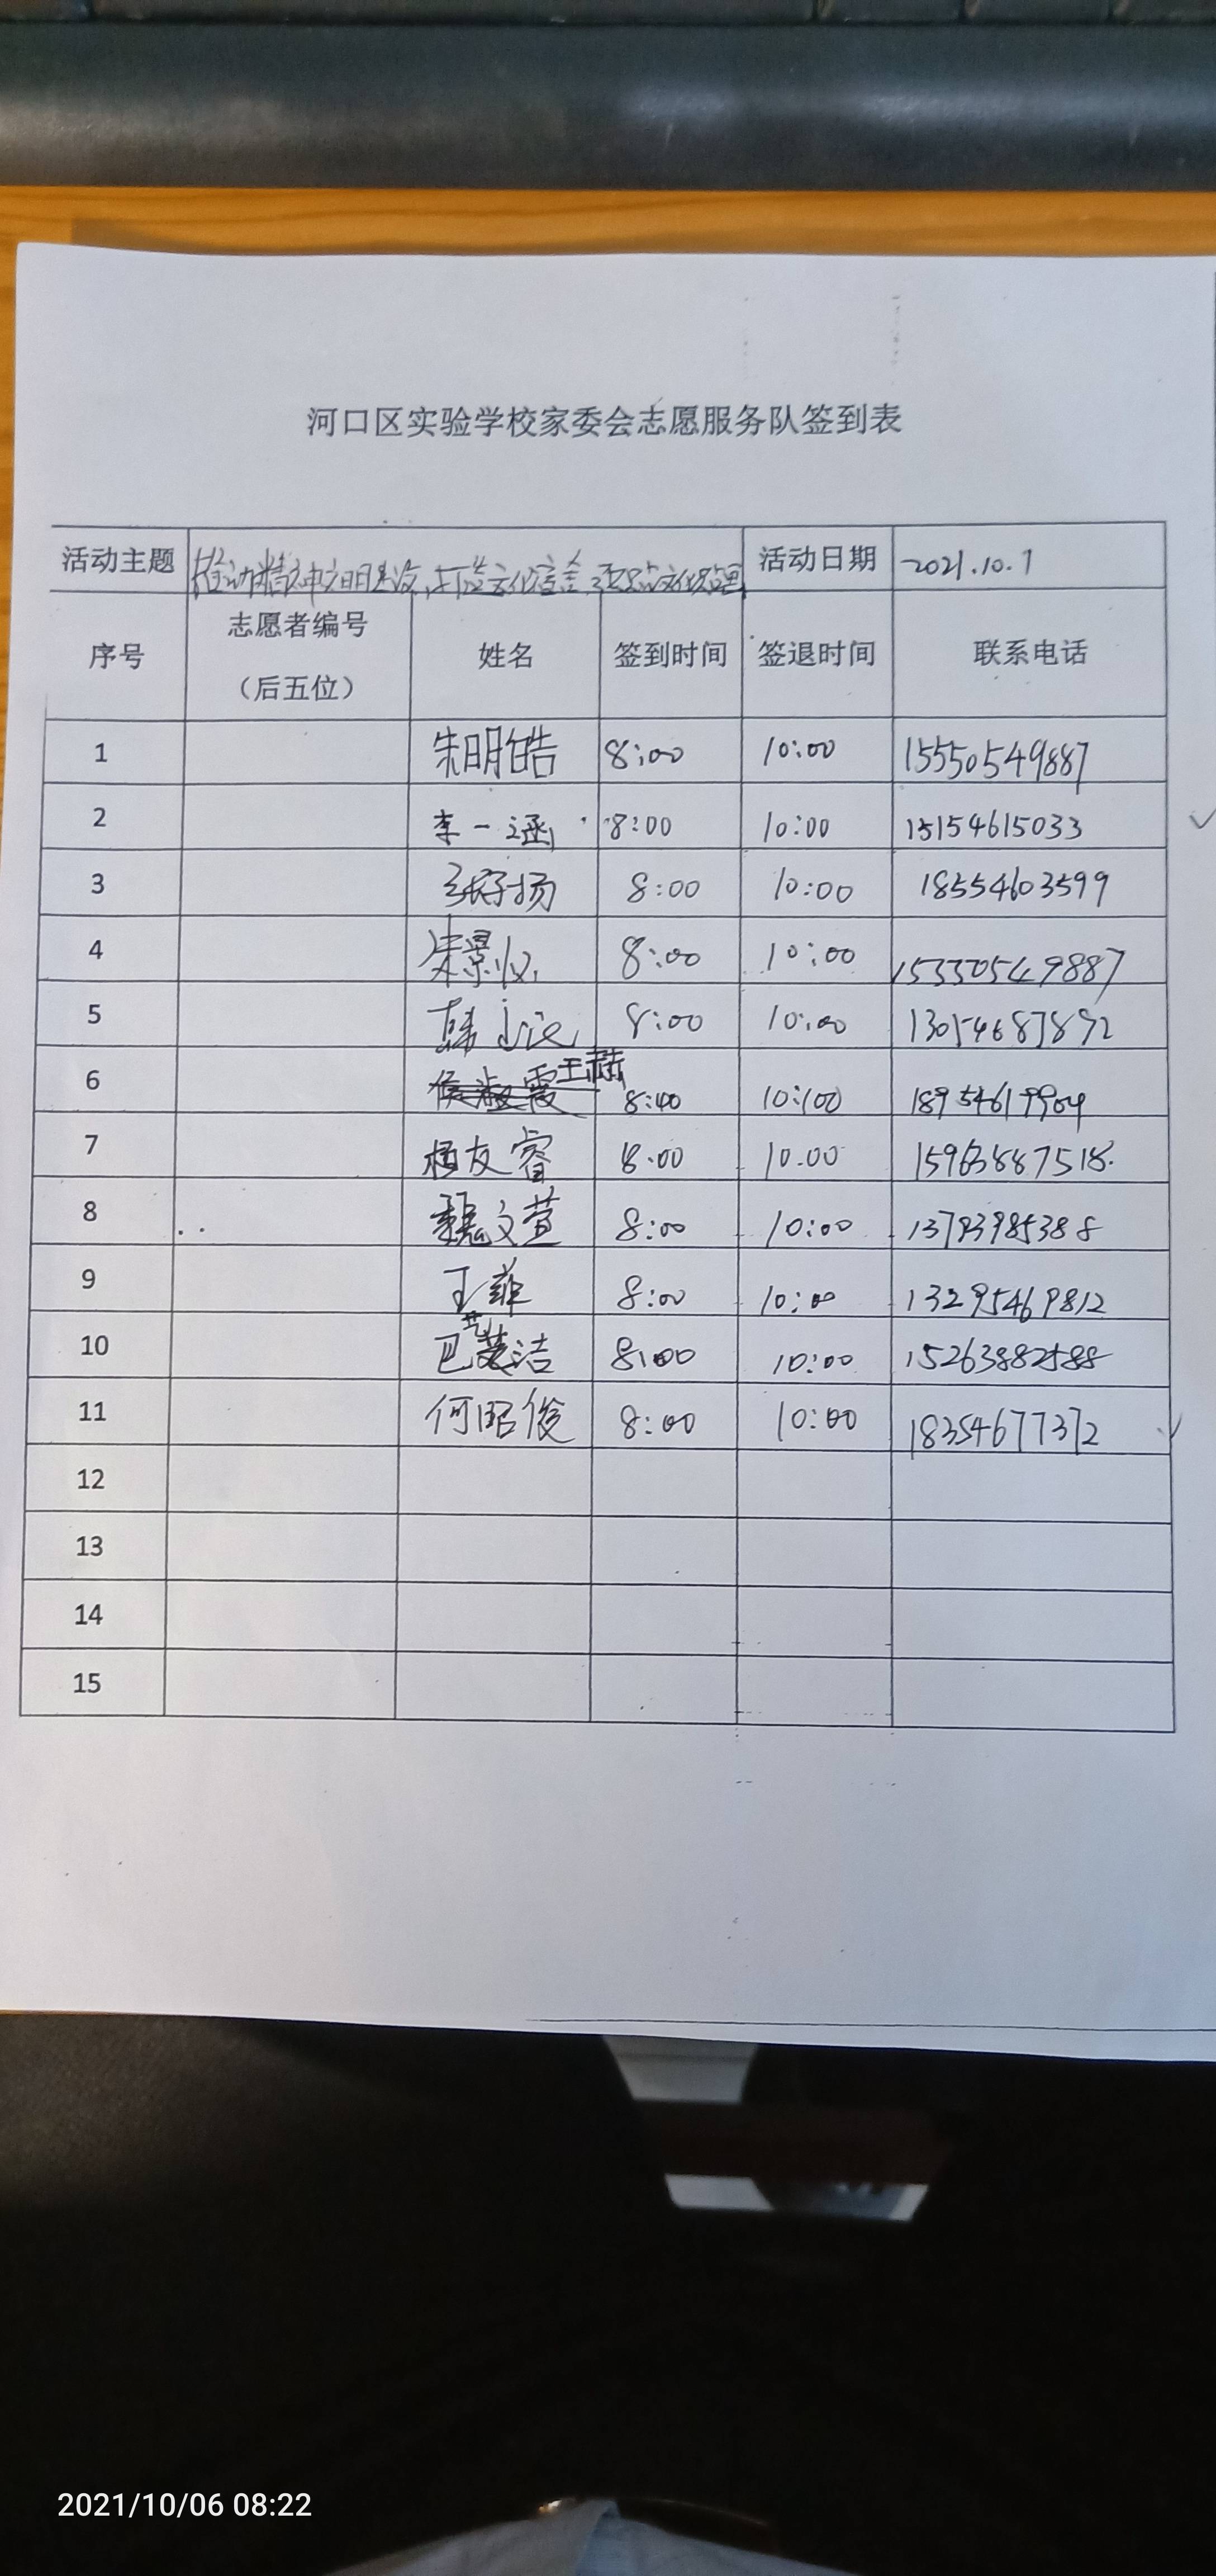 河口区实验学校家委会志愿服务队签到表
活动主题 推动精神文明建设 活动日期 2021.10.1
序号 志愿者编号（后五位） 姓名 签到时间 签退时间 联系电话
1 朱明皓 8:00 10:00 15550549887
2 李一涵 8:00 10:00 15154615033
3 张好扬 8:00 10:00 18554603599
4 朱景 8:00 10:00 15550549887
5 韩 8:00 10:00 13054687892
6 侯淑霞 王赫 8:40 10:00 18954619904
7 杨友睿 8:00 10.00 15963887518
8 魏文萱 8:00 10:00 13793985388
9 王菲 8:00 10:00 13295469812
10 巴艺洁 8:00 10:00 15263882588
11 何昭俊 8:00 10:00 18354677372
12
13
14
15
2021/10/06 08:22